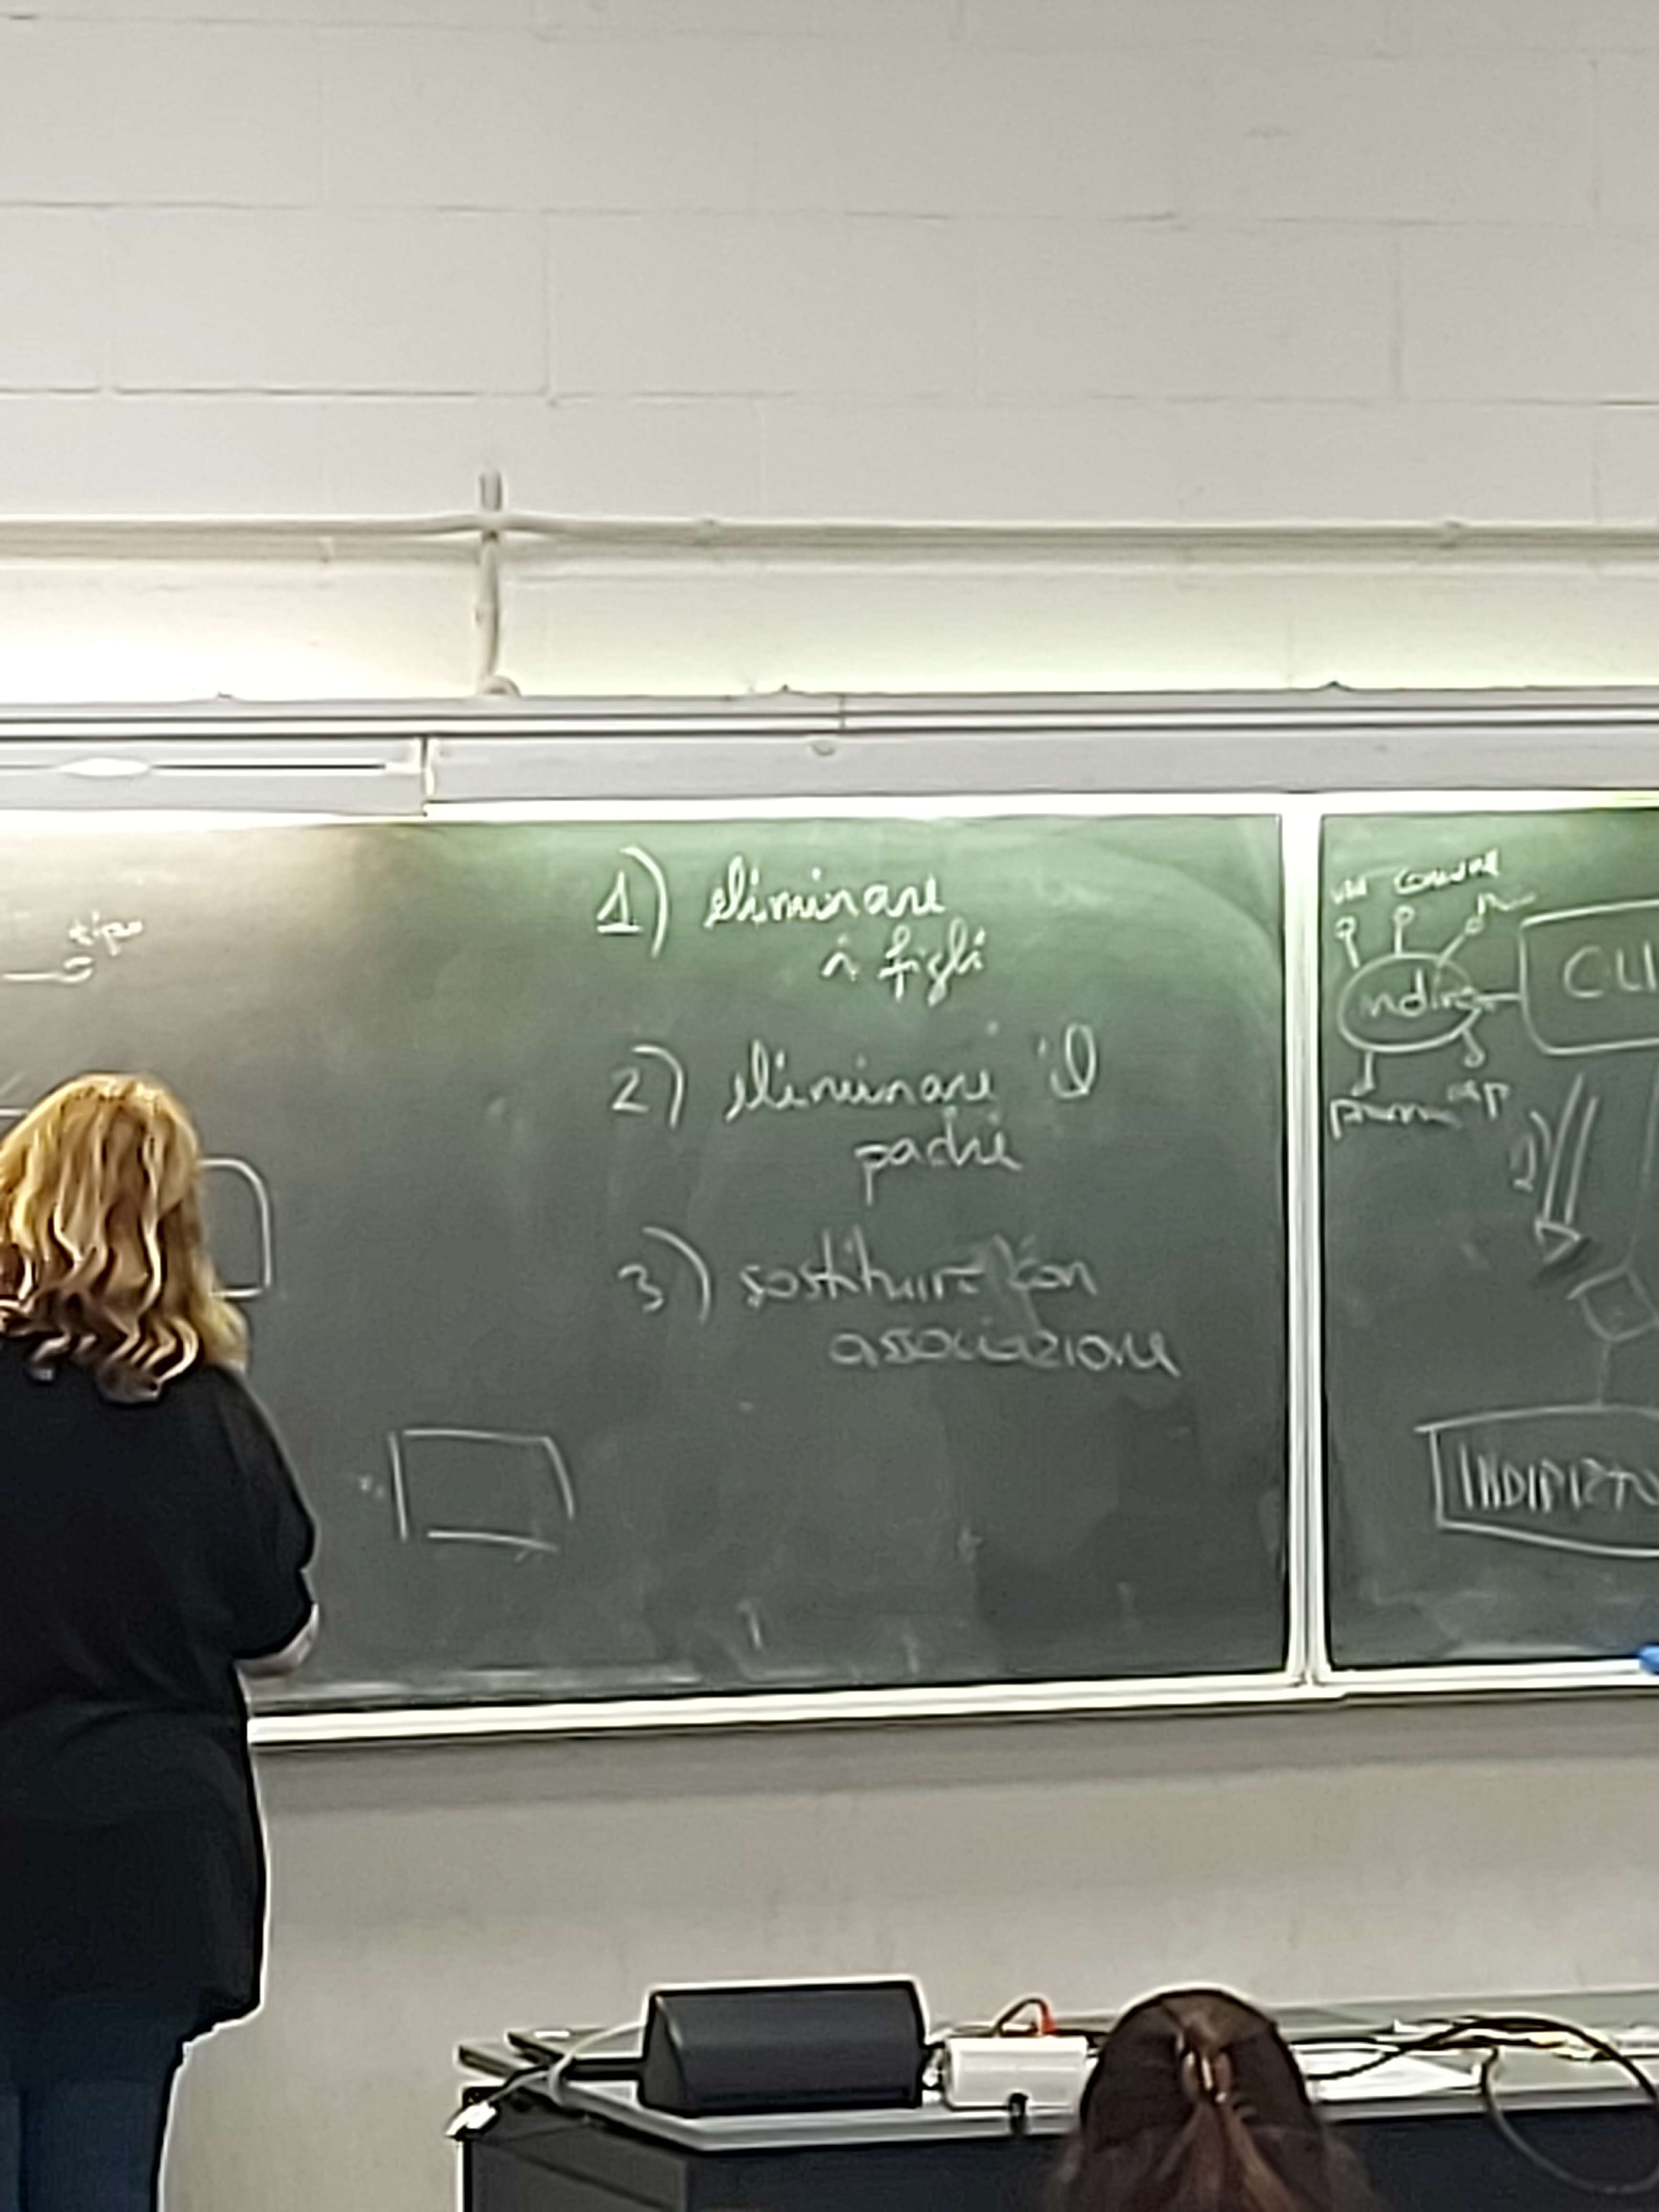 tipo
1) eliminare
i figli
2) eliminare il
padre
3) sostituire con
associazione
via comune
indir
CLI
cap
2)
INDIRIZZO